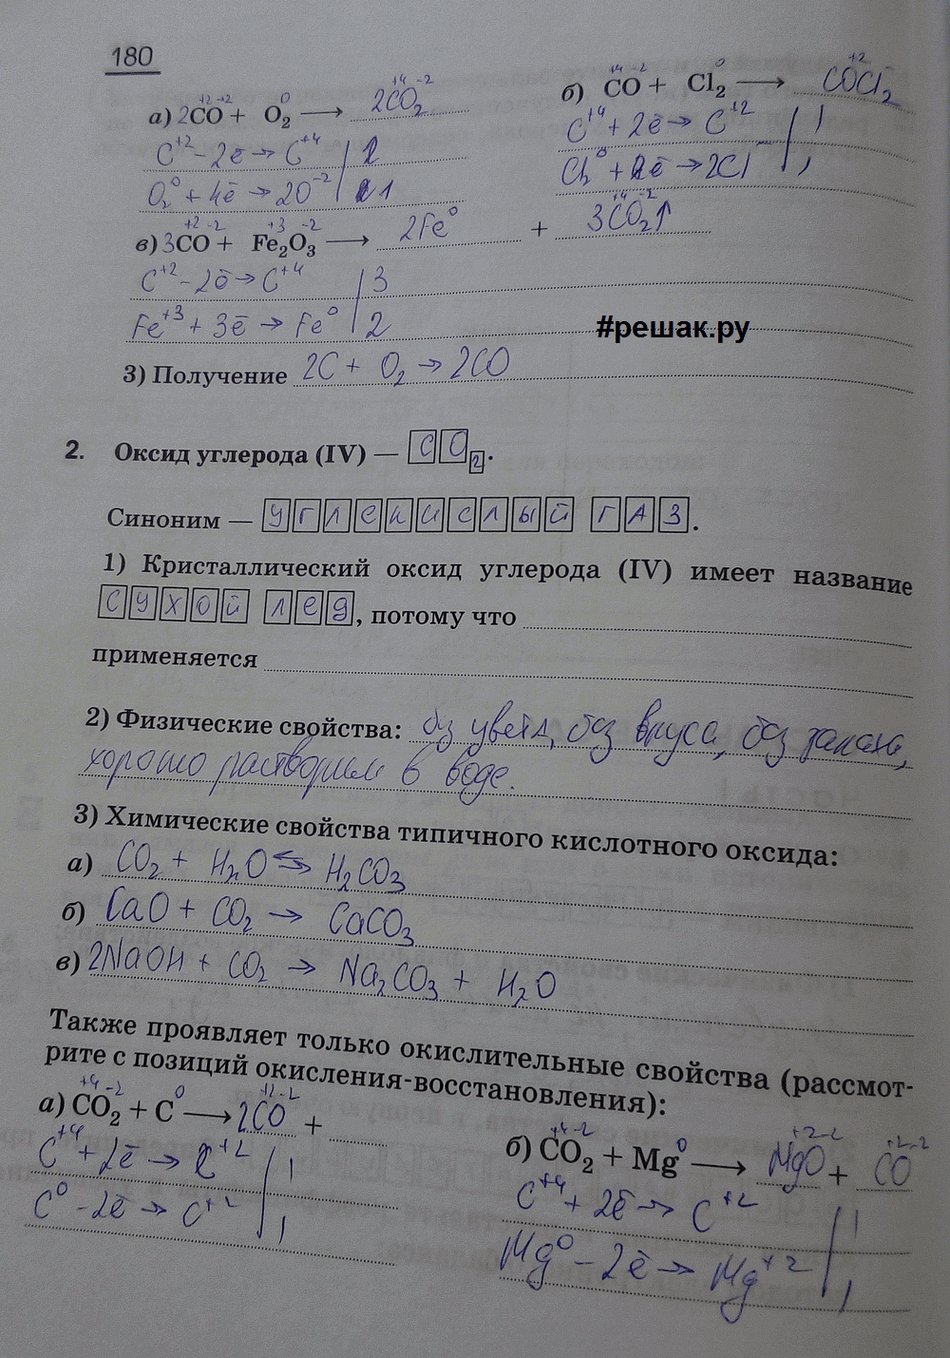 180
а) 2CO + O₂ ⟶ 2CO₂
C⁺² - 2ē → C⁺⁴ | 2
O₂⁰ + 4ē → 2O⁻² | 1
б) CO + Cl₂ ⟶ COCl₂
C⁺⁴ + 2ē → C⁺² | 1
Cl₂⁰ + 2ē → 2Cl | 1
в) 3CO + Fe₂O₃ ⟶ 2Fe⁰ + 3CO₂↑
C⁺² - 2ē → C⁺⁴ | 3
Fe⁺³ + 3ē → Fe⁰ | 2
#решак.ру
3) Получение 2C + O₂ → 2CO
2. Оксид углерода (IV) — CO₂.
Синоним — углекислый газ.
1) Кристаллический оксид углерода (IV) имеет название
сухой лед, потому что
применяется
2) Физические свойства: без цвета, без вкуса, без запаха,
хорошо растворим в воде.
3) Химические свойства типичного кислотного оксида:
а) CO₂ + H₂O ⇆ H₂CO₃
б) CaO + CO₂ → CaCO₃
в) 2NaOH + CO₂ → Na₂CO₃ + H₂O
Также проявляет только окислительные свойства (рассмот-
рите с позиций окисления-восстановления):
а) CO₂ + C⁰ ⟶ 2CO +
C⁺⁴ + 2ē → C⁺² | 1
C⁰ - 2ē → C⁺² | 1
б) CO₂ + Mg⁰ ⟶ MgO + CO
C⁺⁴ + 2ē → C⁺² | 1
Mg⁰ - 2ē → Mg⁺² | 1